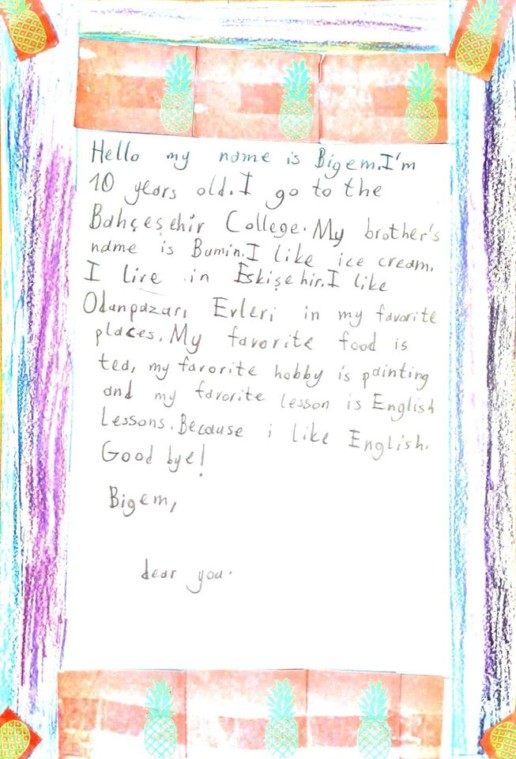 Hello my name is Bigem.I'm
10 years old.I go to the
Bahçeşehir College. My brother's
name is Bumin.I like ice cream.
I live in Eskişehir.I like
Odunpazarı Evleri in my favorite
places. My favorite food is
tea, my favorite hobby is painting
and my favorite lesson is English
Lessons. Because i like English.
Good bye!
Bigem,
dear you.